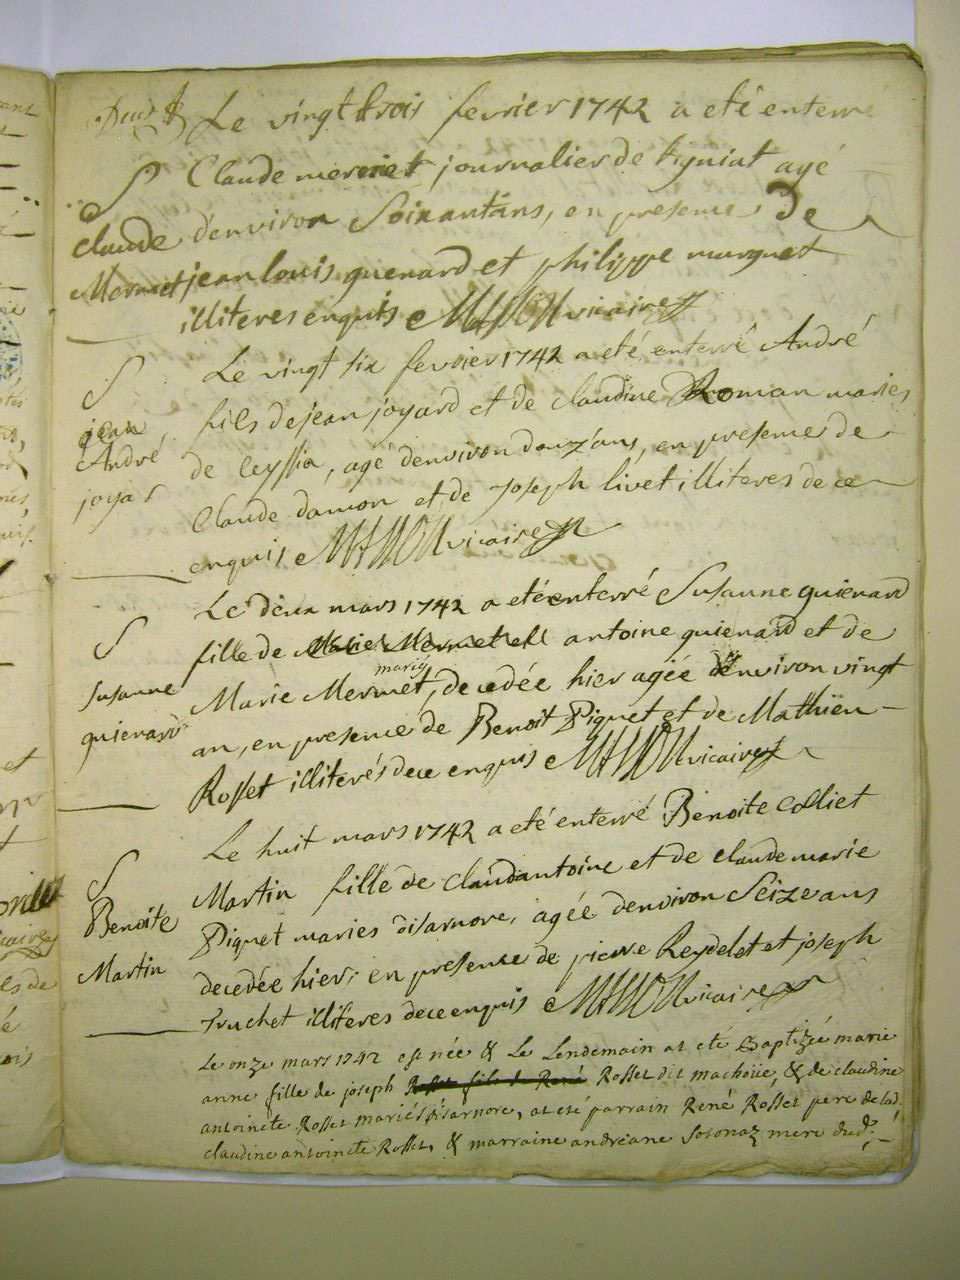 Le vingt trois fevrier 1742 a eté enterré
S
Claude mermet journalier de tigniat agé
Claude
d'environ Soixantans, en presence de
Mermet
jean louis guenard et philippe murguet
illiteres enquis vicaire
S
Le vingt six fevrier 1742 a eté enterré André
jean
fils de jean joyard et de claudine Roman maries
André
de Ceyssia, agé denviron douz'ans, en presence de
joyar
Claude damon et de joseph livet illiteres de ce
enquis vicaire
Le deux mars 1742 a eté enterré Susanne quienard
S
fille de antoine quienard et de
mariés
Susanne
Marie Mermet, decedée hier agée denviron vingt
quienard
an, en presence de Benoit Piquet et de Mathieu
Rosset illiterés de ce enquis vicaire
Le huit mars 1742 a eté enterré Benoite Colliet
S
Martin fille de claudantoine et de claude marie
Benoite
Piquet maries disarnore, agée denviron Seize ans
Martin
decedée hier, en presence de pierre Reydelet et joseph
truchet illiteres de ce enquis vicaire
Le onze mars 1742 est née & Le Lendemain at eté Baptizée marie
anne fille de joseph Rosset fils de René Rosset dit machoüe, & de claudine
antoinete Rosset mariés d'isarnore, at eté parrain René Rosset pere de lad.
claudine antoinete Rosset, & marraine andreane Sosonaz mere dud.